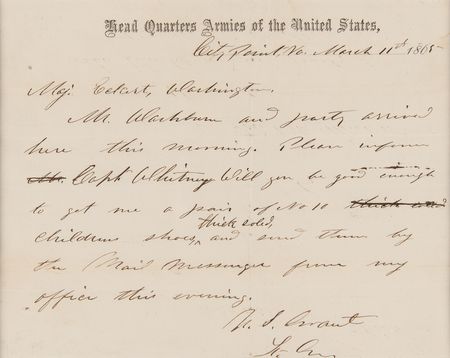 Head Quarters Armies of the United States,
City Point, Va. March 11th 1865
Maj. Eckert, Washington.
Mr. Washburn and party arrived
here this morning. Please inform
Mr. Capt Whitney Will you be good enough
to get me a pair of No 10 thick and
thick soled,
childrens shoes, and send them by
the Mail Messenger from my
office this evening.
U. S. Grant
Lt. Gn